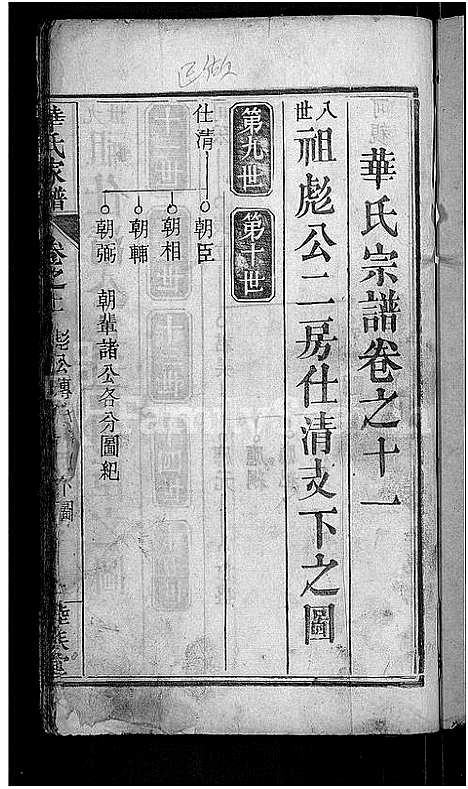 華氏宗譜卷之十一
八世祖彪公二房仕清支下之圖
第九世 第十世
仕清 朝臣
朝相
朝輔
朝弼 朝輩諸公各分圖紀
華氏家譜 卷之十一 彪公傳 下圖